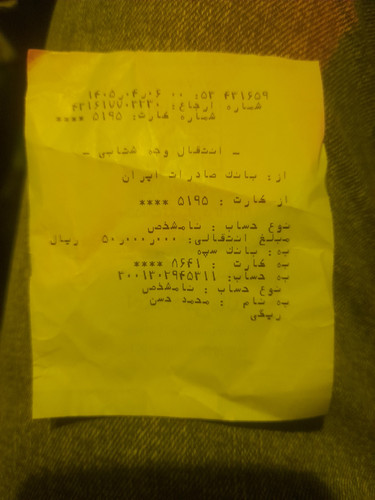 ۱۴۰۵٫۰۴٫۰۶ ۰۰ :۵۲ ۴۲۱۶۵۹
شماره ارجاع: ۴۲۱۶۱۷۷۰۲۲۲۰
شماره کارت: ۵۱۹۵ ****
- انتقال وجه شتابی -
از: بانک صادرات ایران
از کارت : ۵۱۹۵ ****
نوع حساب : نامشخص
مبلغ انتقالی: ۵۰٫۰۰۰٫۰۰۰ ریال
به: بانک سپه
به کارت : ۸۶۴۱ ****
به حساب: ۲۰۰۱۲۰۲۹۴۵۲۱۱
نوع حساب : نامشخص
به نام : محمد حسن
ریگی